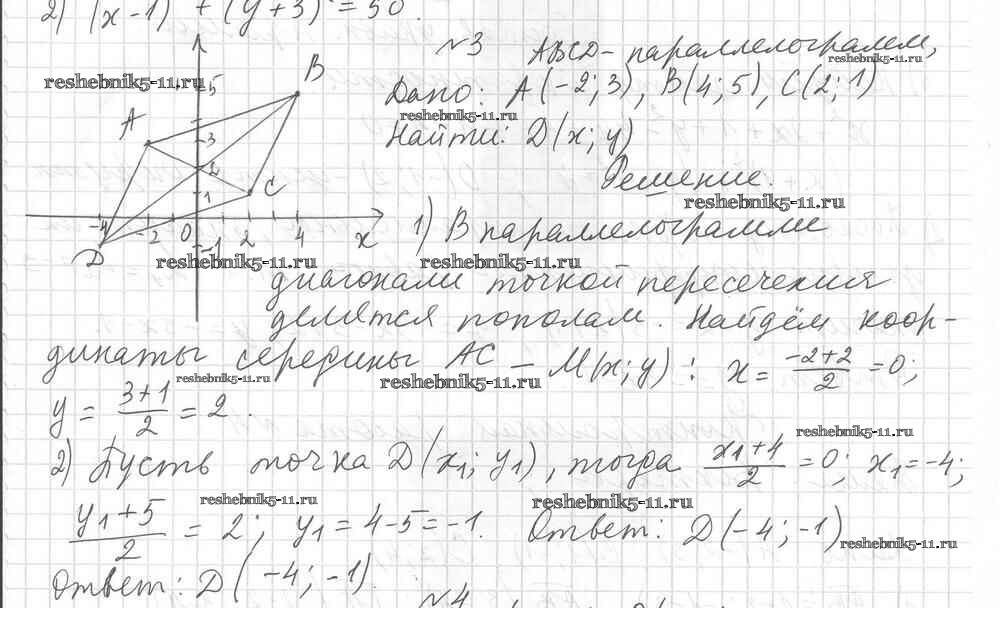 2) (x-1)² + (y+3)² = 50.
№3 ABCD - параллелограмм,
reshebnik5-11.ru
Дано: A(-2; 3), B(4; 5), C(2; 1)
reshebnik5-11.ru
Найти: D(x; y)
Решение.
reshebnik5-11.ru
reshebnik5-11.ru
5
B
A
3
2
1
C
-4
-2
0
2
4
x
-1
D
reshebnik5-11.ru
1) В параллелограмме
reshebnik5-11.ru
диагонали точкой пересечения
делятся пополам. Найдём коор-
динаты середины AC - M(x; y): x = (-2+2)/2 = 0;
reshebnik5-11.ru
reshebnik5-11.ru
y = (3+1)/2 = 2.
reshebnik5-11.ru
2) Пусть точка D(x₁; y₁), тогда (x₁+4)/2 = 0; x₁ = -4;
reshebnik5-11.ru
reshebnik5-11.ru
(y₁+5)/2 = 2; y₁ = 4-5 = -1. Ответ: D(-4; -1)
reshebnik5-11.ru
Ответ: D(-4; -1).
№4